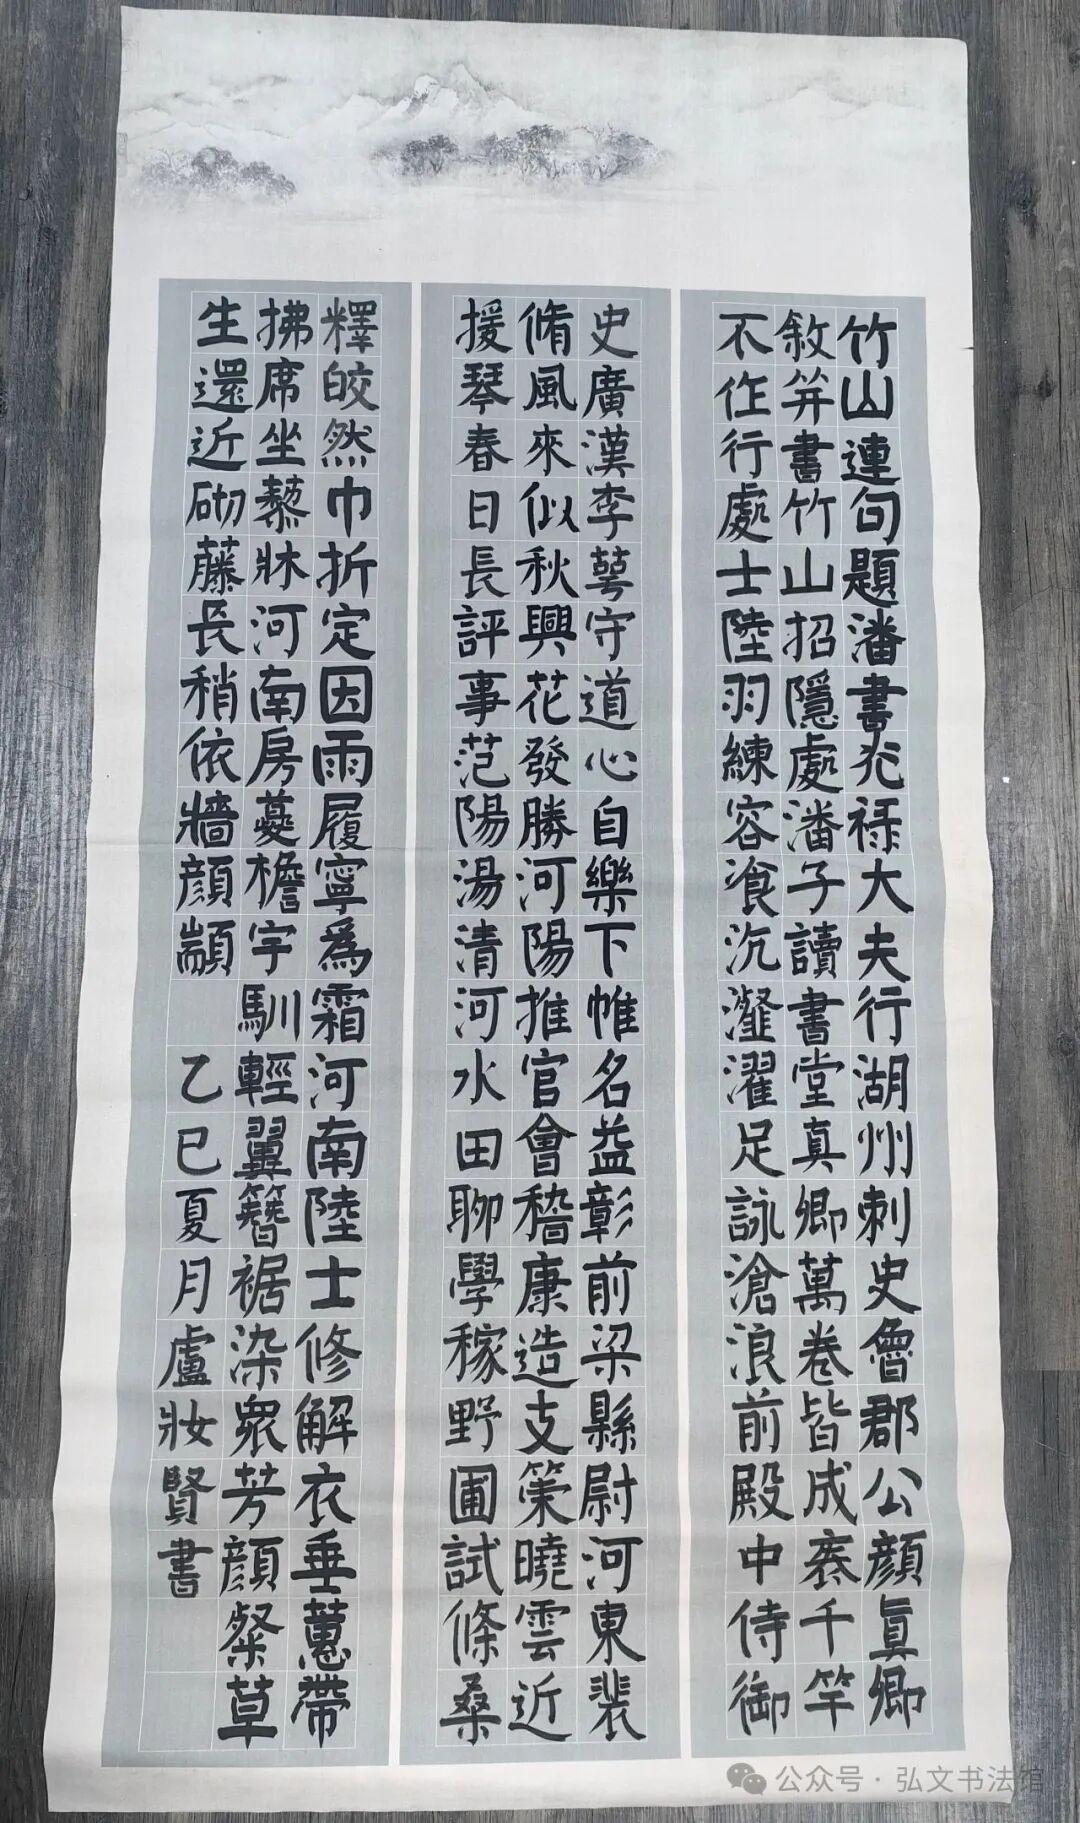 竹山連句題潘書光祿大夫行湖州刺史魯郡公顏真卿
敘并書竹山招隱處潘子讀書堂真卿萬卷皆成袠千竿
不作行處士陸羽練容飡沆瀣濯足詠滄浪前殿中侍御
史廣漢李萼守道心自樂下帷名益彰前梁縣尉河東裴
脩風來似秋興花發勝河陽推官會稽康造支策曉雲近
援琴春日長評事范陽湯清河水田聊學稼野圃試條桑
釋皎然巾折定因雨履寧為霜河南陸士修解衣垂蕙帶
拂席坐藜牀河南房夔檐宇馴輕翼簪裾染眾芳顏粲草
生還近砌藤長稍依牆顏顓
乙巳夏月盧妝賢書
公众号·弘文书法馆